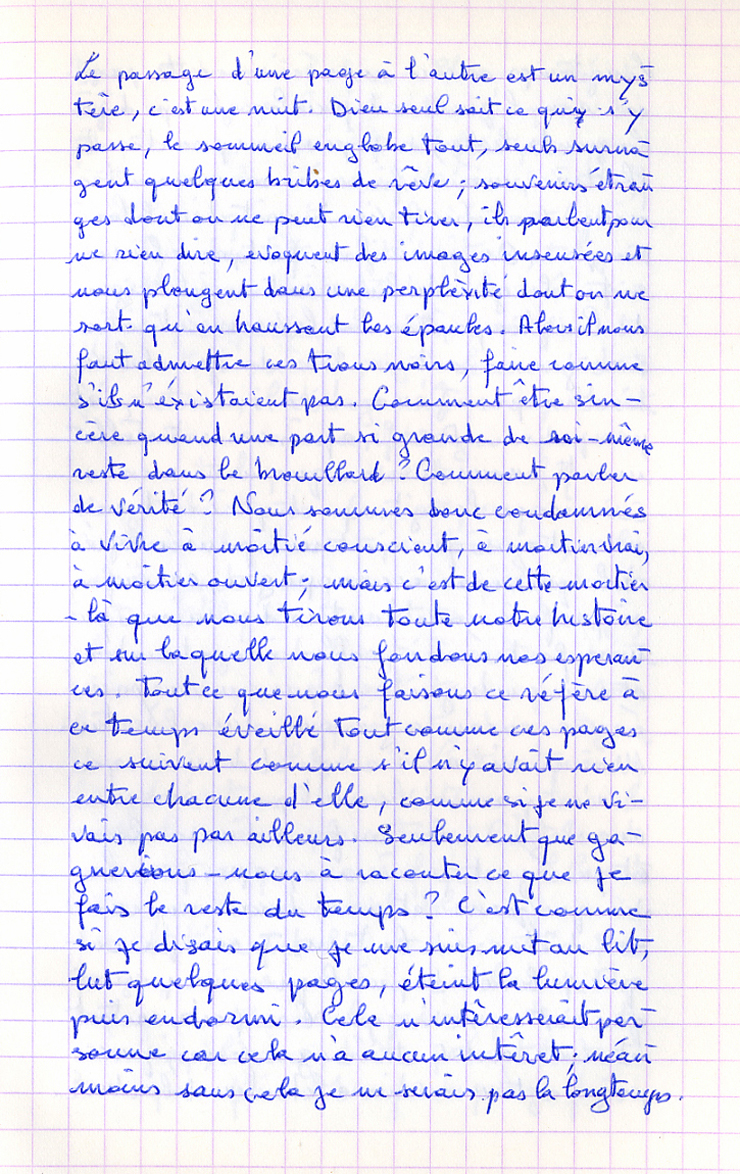 Le passage d'une page à l'autre est un mys-
tère, c'est une nuit. Dieu seul sait ce qui s'y
passe, le sommeil englobe tout, seuls surna-
gent quelques bribes de rêve ; souvenirs étran-
ges dont on ne peut rien tirer, ils parlent pour
ne rien dire, evoquent des images insensées et
nous plongent dans une perpléxité dont on ne
sort qu'en haussant les épaules. Alors il nous
faut admettre ces trous noirs, faire comme
s'ils n'éxistaient pas. Comment être sin-
cère quand une part si grande de soi-même
reste dans le brouillard ? Comment parler
de vérité ? Nous sommes donc condamnés
à vivre à moitié conscient, à moitier vrai,
à moitier ouvert ; mais c'est de cette moitier
-là que nous tirons toute notre histoire
et sur laquelle nous fondons nos esperan-
ces. Tout ce que nous faisons ce réfère à
ce temps éveillé tout comme ces pages
ce suivent comme s'il n'y avait rien
entre chacune d'elle, comme si je ne vi-
vais pas par ailleurs. Seulement que ga-
gnerions-nous à raconter ce que je
fais le reste du temps ? C'est comme
si je disais que je me suis mit au lit,
lut quelques pages, éteint la lumière
puis endormi. Cela n'intèresserait per-
sonne car cela n'a aucun intêret ; néan-
moins sans cela je ne serais pas là longtemps.